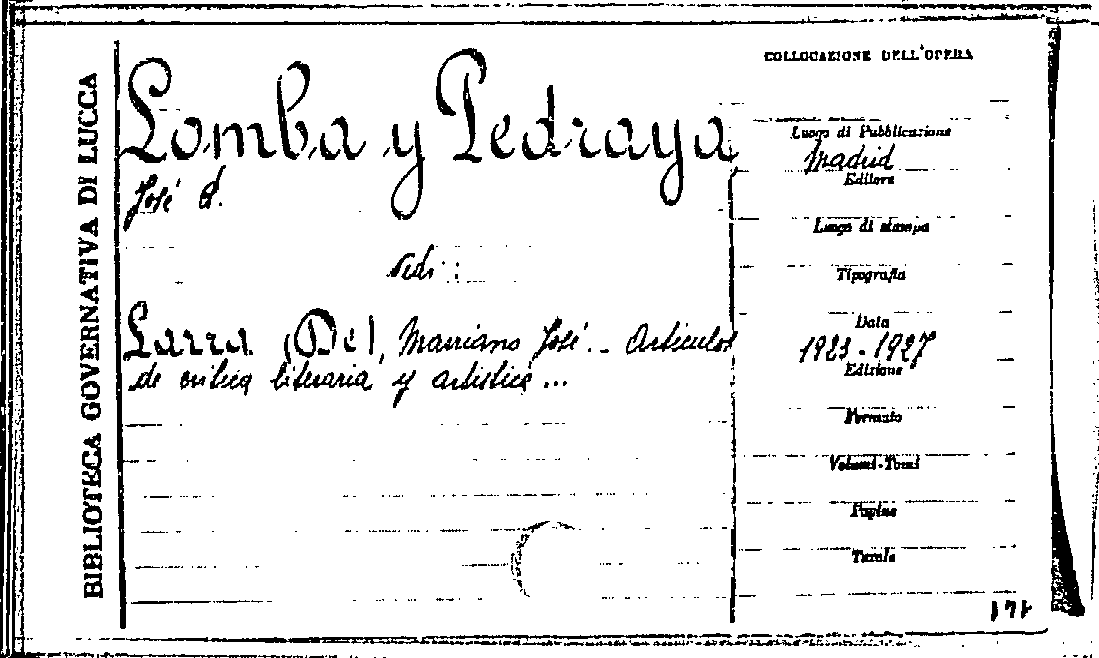 BIBLIOTECA GOVERNATIVA DI LUCCA
Lomba y Pedraya
José
Vedi:
Larra (De), Mariano José - Articulos
de critica literaria y artistica...
COLLOCAZIONE DELL'OPERA
Luogo di Pubblicazione
Madrid
Editore
Luogo di stampa
Tipografia
Data
1923-1927
Edizione
Formato
Volumi-Tomi
Pagine
Tavole
171